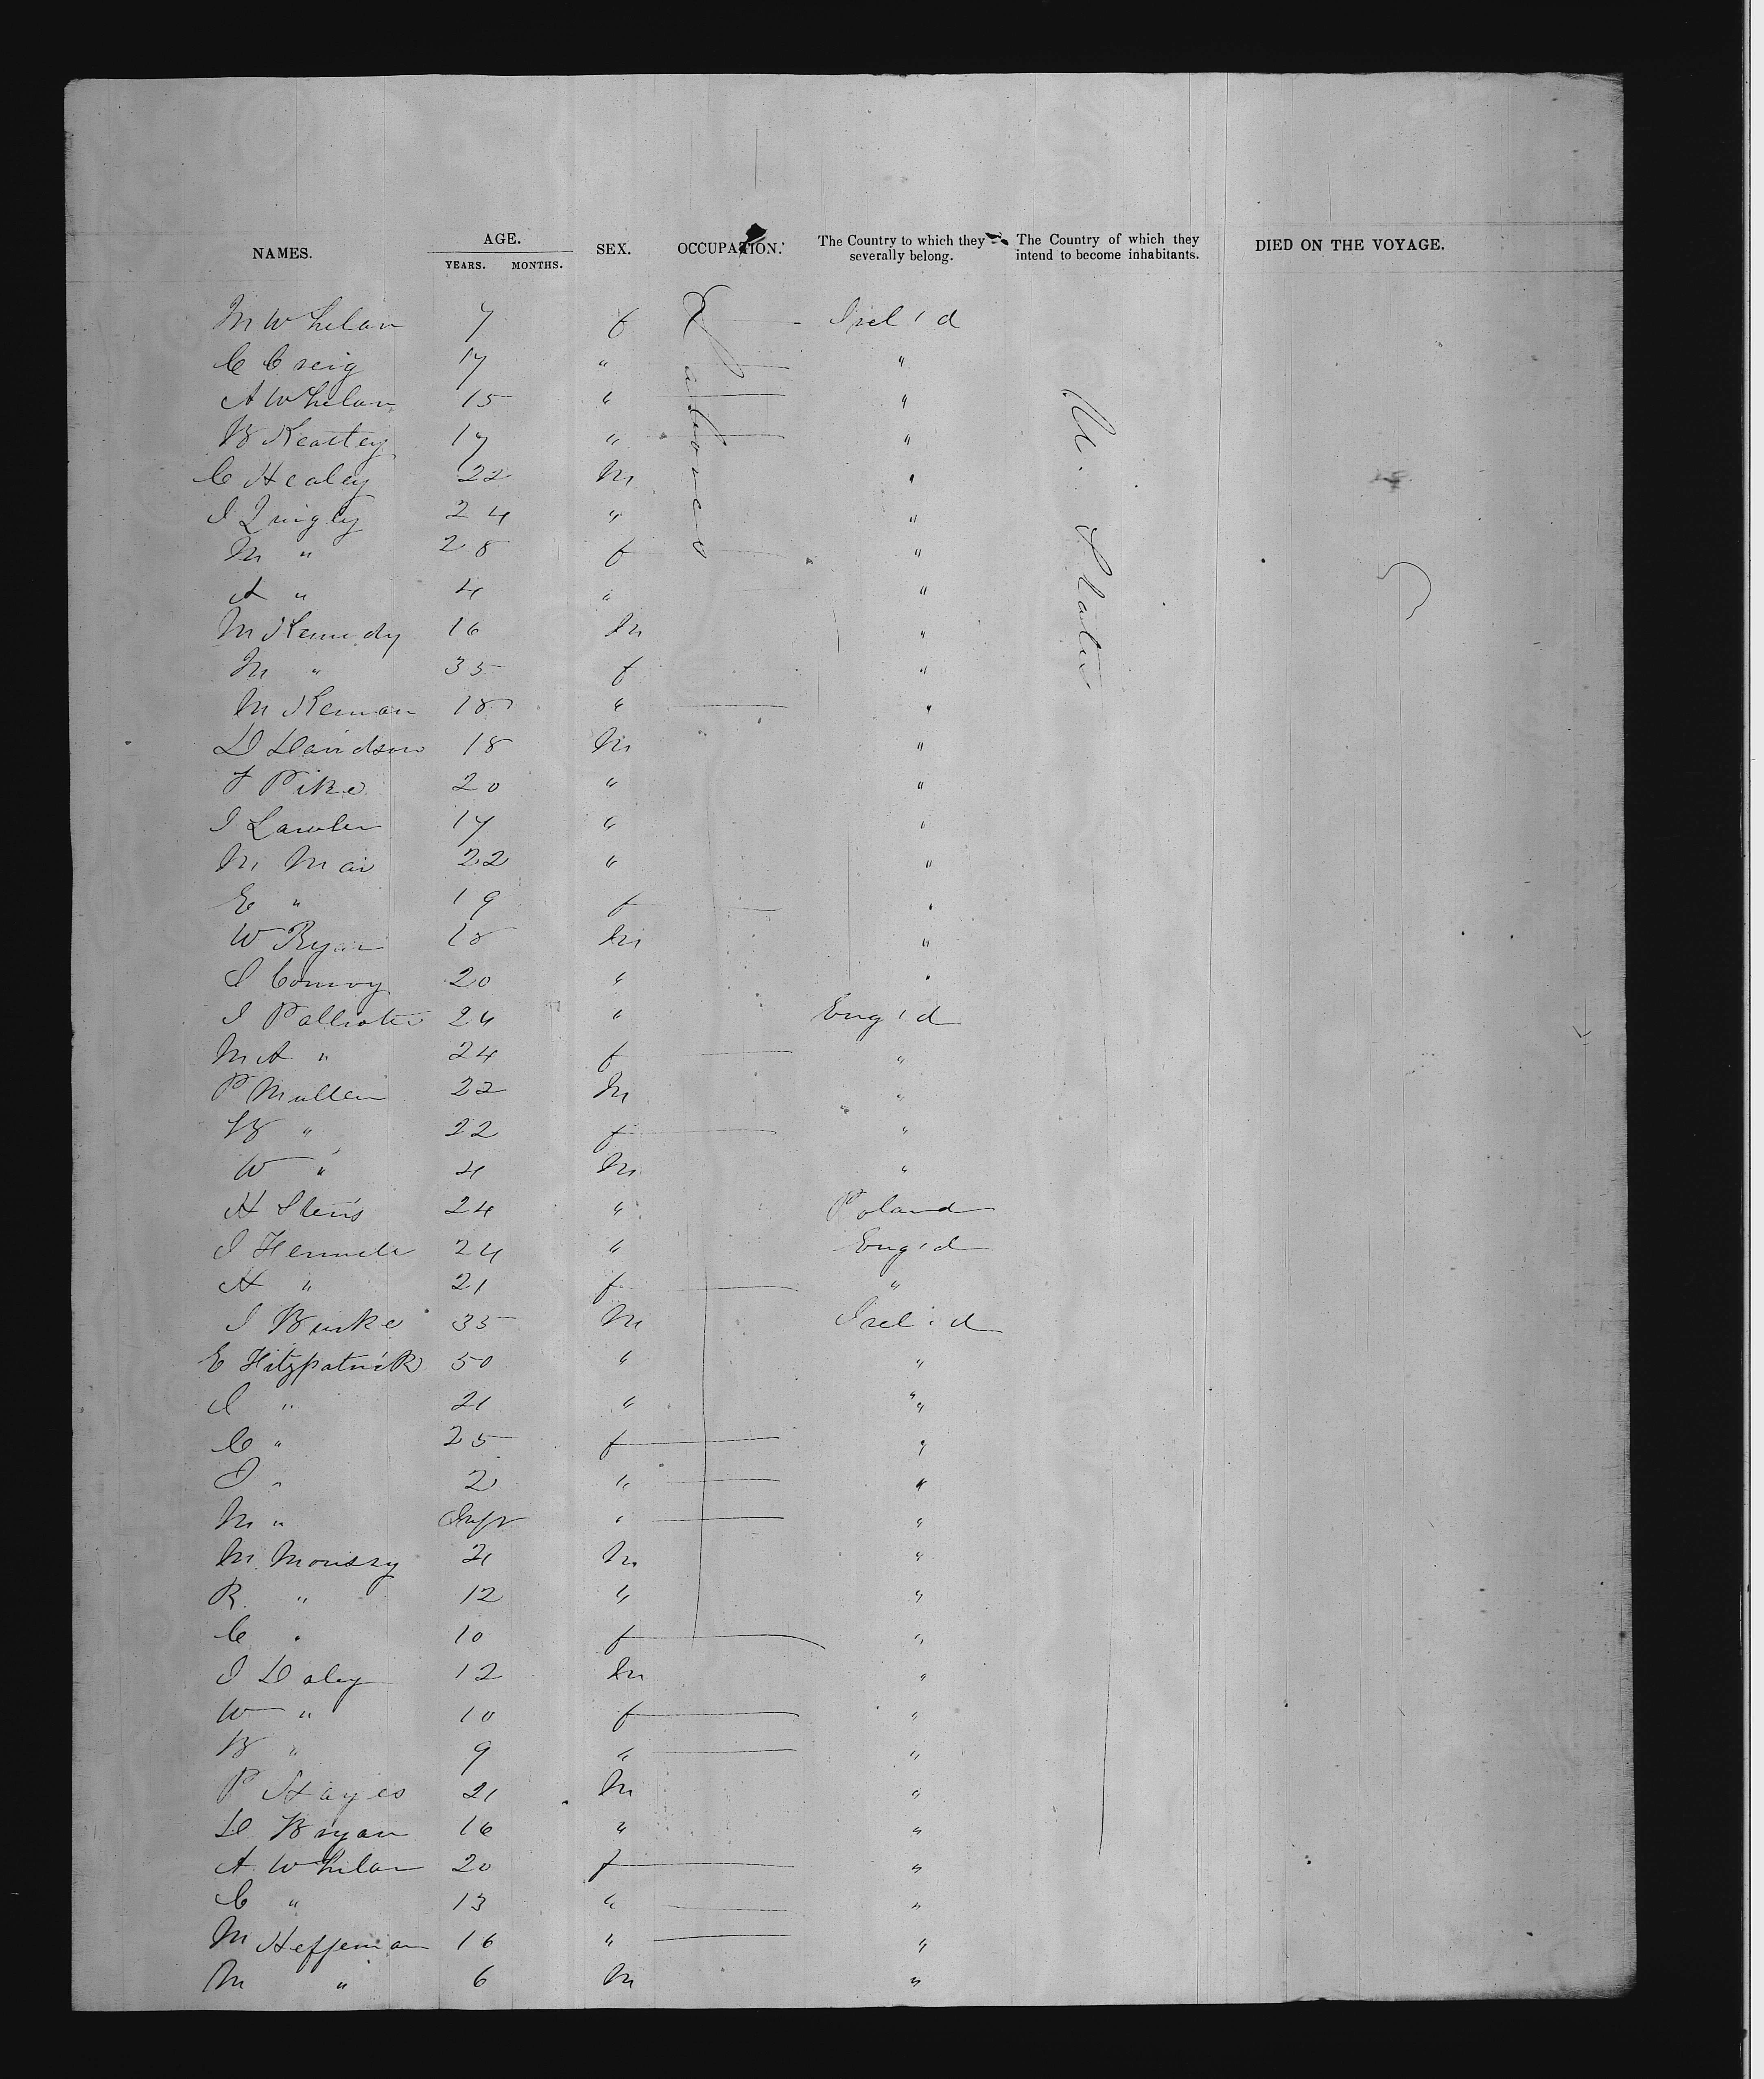 NAMES. AGE. SEX. OCCUPATION. The Country to which they severally belong. The Country of which they intend to become inhabitants. DIED ON THE VOYAGE.
YEARS. MONTHS.
Laborers
U. States
M Whelan 7 f Irel'd
C Creig 17 " "
A Whelan 15 " "
B Keattey 17 " "
C Healey 22 M "
J Quigly 24 " "
M " 28 f "
A " 4 " "
M Kennedy 16 M "
M " 35 f "
M Kernan 18 " "
D Davidson 18 M "
F Pike 20 " "
J Lawler 17 " "
M Mai 22 " "
E " 19 f "
W Ryan 18 M "
J Conroy 20 " "
J 24 " Eng'd
M A " 24 f "
P Mullen 22 M "
B " 22 f "
W " 4 M "
H Stens 24 " Poland
J 24 " Eng'd
H " 21 f "
J Burke 35 M Irel'd
E Fitzpatrick 50 " "
J " 21 " "
C " 25 f "
J " 2 " "
M " Inft " "
M Morissy 21 M "
R. " 12 " "
C " 10 f "
J Daley 12 M "
W " 10 f "
B " 9 " "
P Hayes 21 M "
D Bryan 16 " "
A Whelan 20 f "
C " 13 " "
M Heffernan 16 " "
M " 6 M "